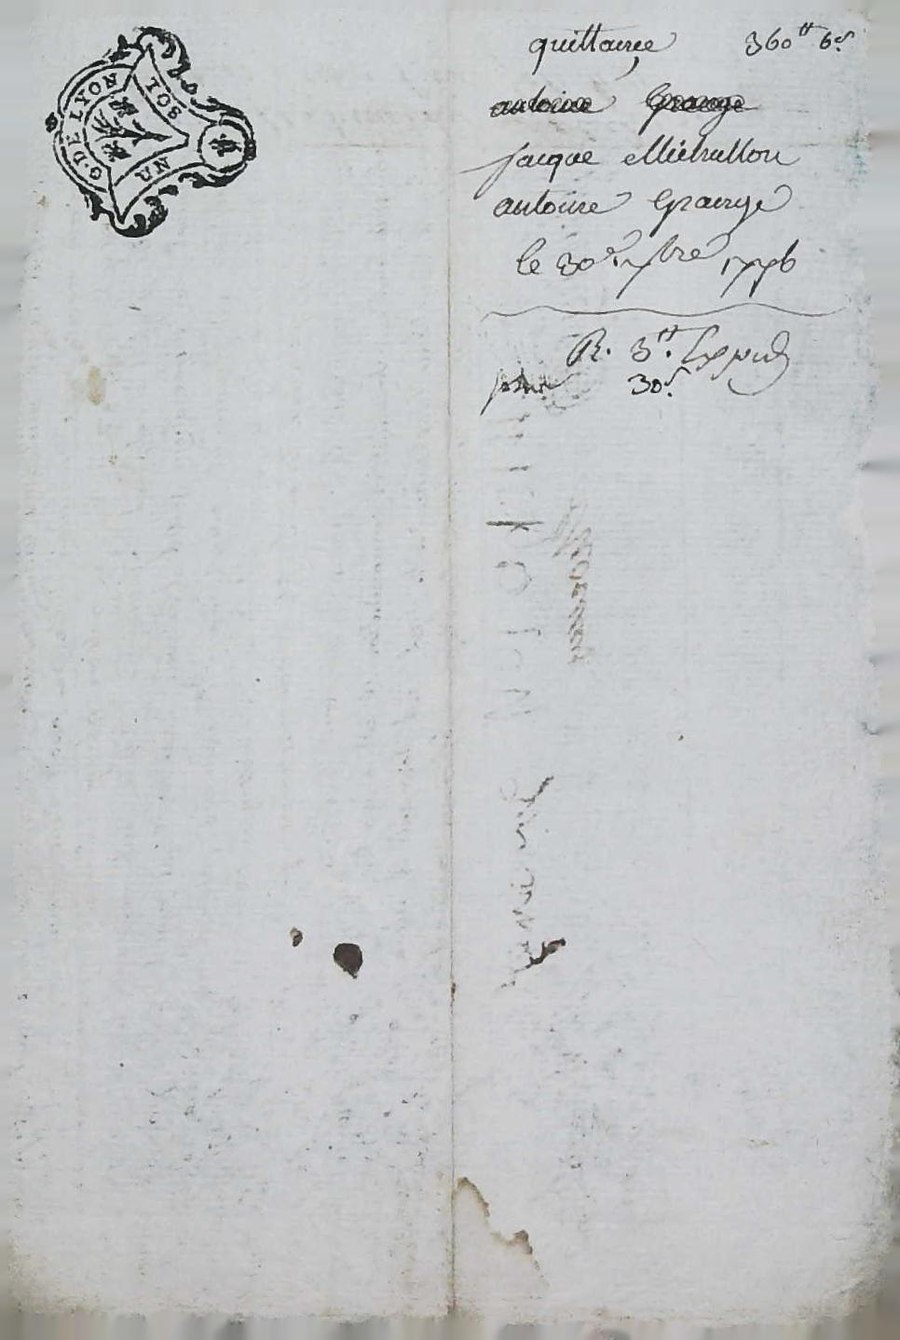 G. DE LYON
UN SOL
quittance 360tt 6s
antoine Grange
jacque Michallon
antoine Grange
le 30e 7bre 1776
R. 3tt
30s